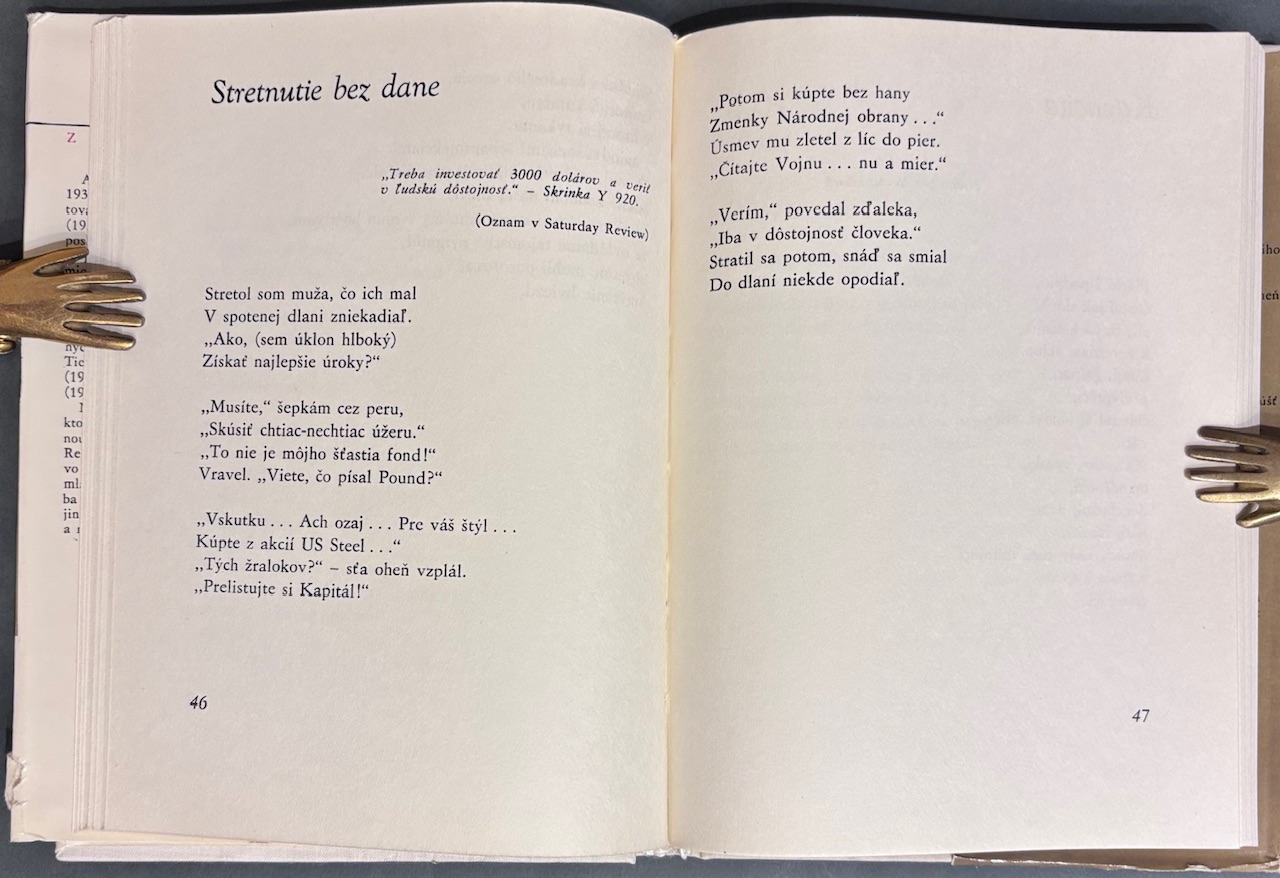 Z
A
193
tova
(19
pos
mie
nýc
Tic
(19
(19
kto
nou
Re
vo
ml
ba
jin
a
Stretnutie bez dane
„Treba investovať 3000 dolárov a veriť
v ľudskú dôstojnosť.“ – Skrinka Y 920.
(Oznam v Saturday Review)
Stretol som muža, čo ich mal
V spotenej dlani zniekadiaľ.
„Ako, (sem úklon hlboký)
Získať najlepšie úroky?“
„Musíte,“ šepkám cez peru,
„Skúsiť chtiac-nechtiac úžeru.“
„To nie je môjho šťastia fond!“
Vravel. „Viete, čo písal Pound?“
„Vskutku . . . Ach ozaj . . . Pre váš štýl . . .
Kúpte z akcií US Steel . . .“
„Tých žralokov?“ – sťa oheň vzplál.
„Prelistujte si Kapitál!“
46
„Potom si kúpte bez hany
Zmenky Národnej obrany . . .“
Úsmev mu zletel z líc do pier.
„Čítajte Vojnu . . . nu a mier.“
„Verím,“ povedal zďaleka,
„Iba v dôstojnosť človeka.“
Stratil sa potom, snáď sa smial
Do dlaní niekde opodiaľ.
47
iho
eň
úšť